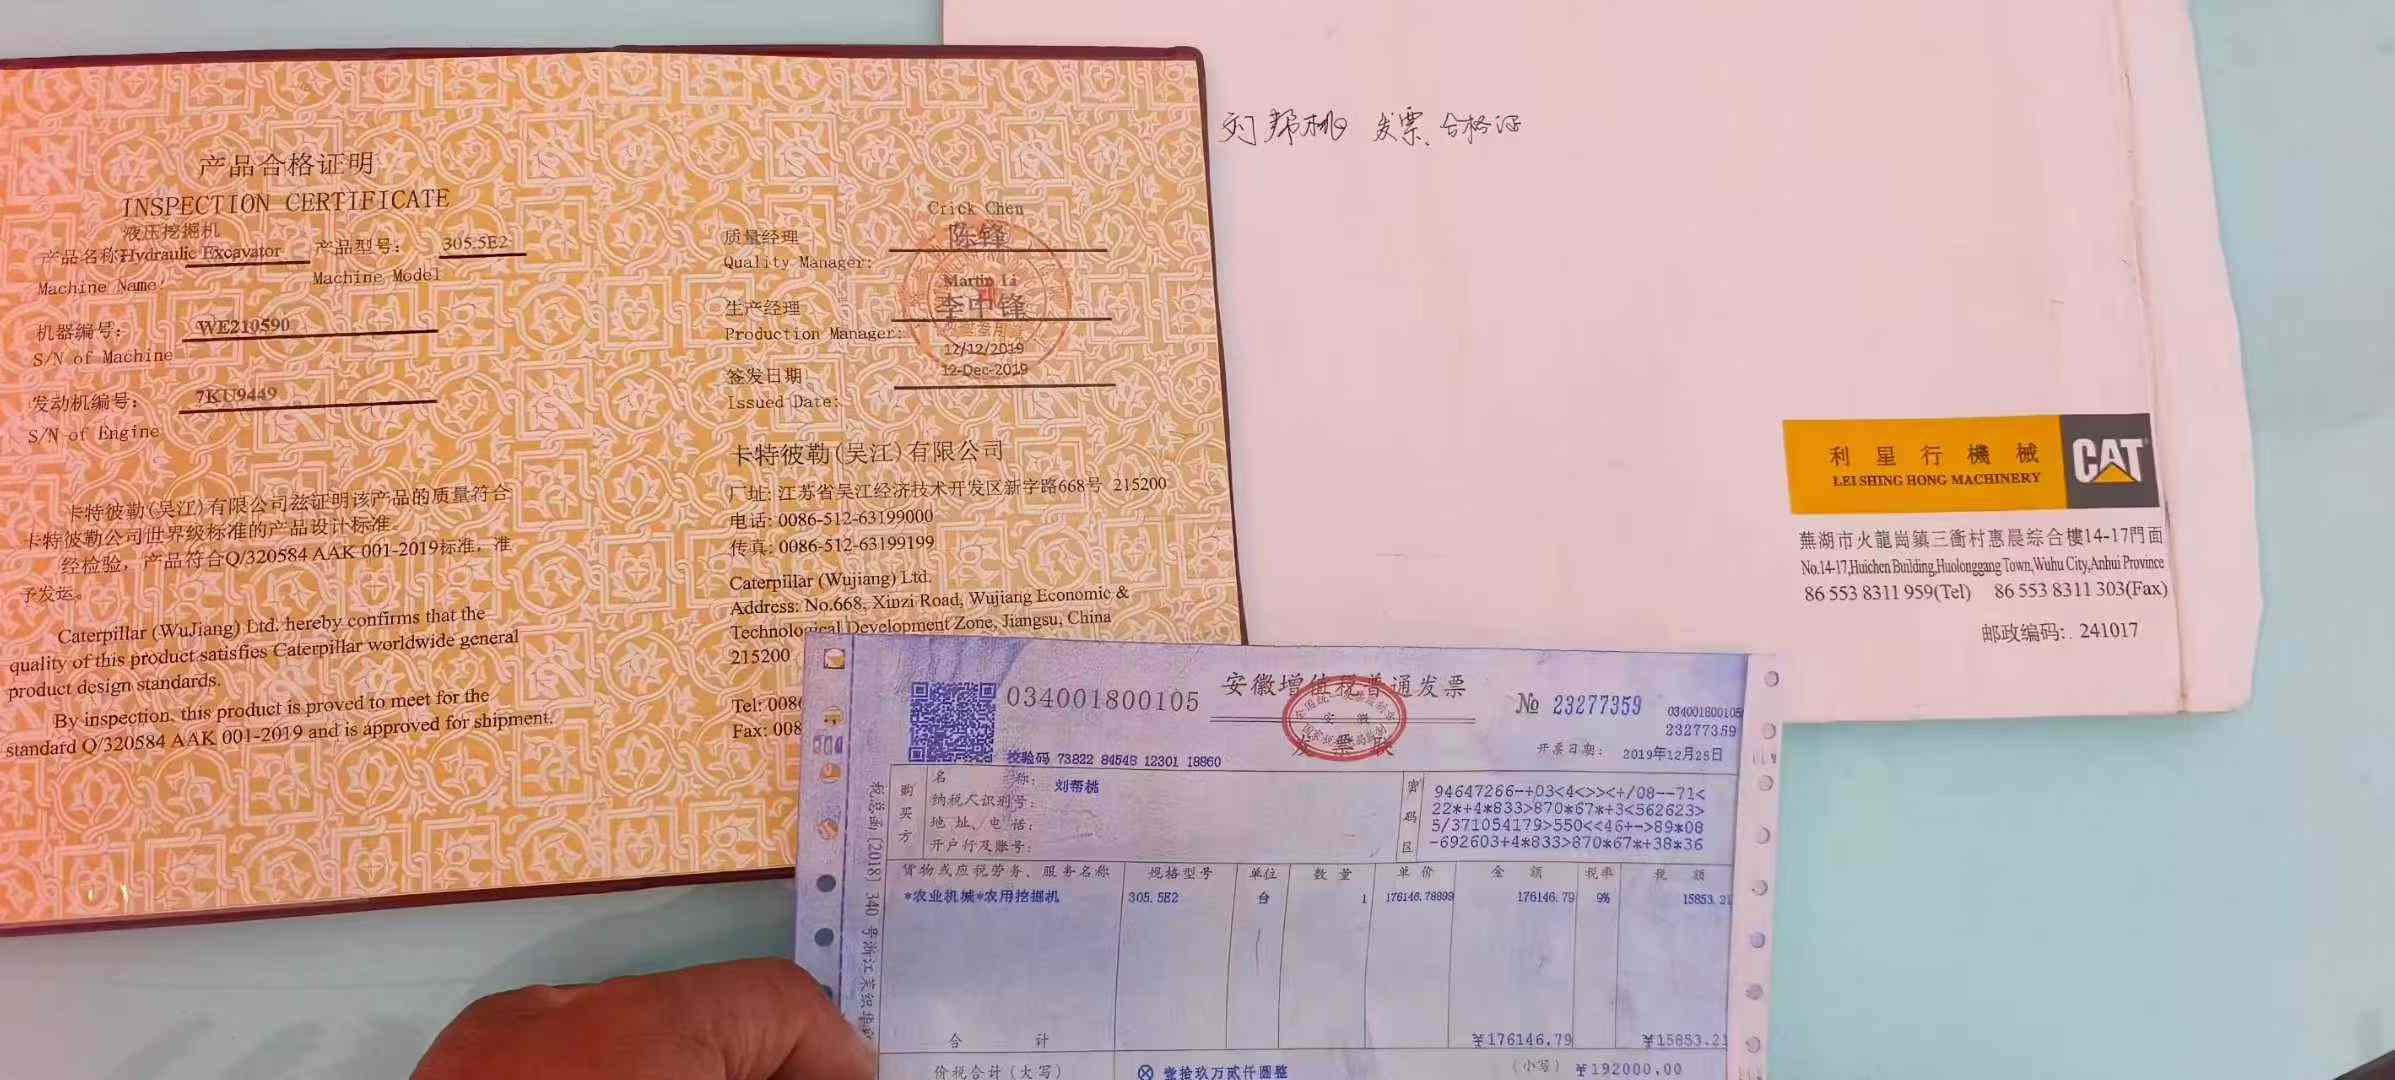 产品合格证明
INSPECTION CERTIFICATE
液压挖掘机
产品名称Hydraulic Excavator 产品型号: 305.5E2
Machine Name: Machine Model
机器编号: WE210590
S/N of Machine
发动机编号: 7KU9449
S/N of Engine
卡特彼勒(吴江)有限公司兹证明该产品的质量符合
卡特彼勒公司世界级标准的产品设计标准。
经检验，产品符合Q/320584 AAK 001-2019标准，准
予发运。
Caterpillar (WuJiang) Ltd. hereby confirms that the
quality of this product satisfies Caterpillar worldwide general
product design standards.
By inspection, this product is proved to meet for the
standard Q/320584 AAK 001-2019 and is approved for shipment.
Crick Chen
质量经理 陈锋
Quality Manager:
Martin Li
生产经理 李中锋
Production Manager:
12/12/2019
签发日期 12-Dec-2019
Issued Date:
卡特彼勒(吴江)有限公司
厂址: 江苏省吴江经济技术开发区新字路668号 215200
电话: 0086-512-63199000
传真: 0086-512-63199199
Caterpillar (Wujiang) Ltd.
Address: No.668, Xinzi Road, Wujiang Economic &
Technological Development Zone, Jiangsu, China
215200
Tel: 0086
Fax: 008
刘帮桃 发票、合格证
利星行機械 CAT
LEI SHING HONG MACHINERY
蕪湖市火龍崗鎮三衝村惠晨綜合樓14-17門面
No.14-17,Huichen Building,Huolonggang Town,Wuhu City,Anhui Province
86 553 8311 959(Tel) 86 553 8311 303(Fax)
邮政编码: 241017
034001800105 安徽增值税普通发票 № 23277359
034001800105
23277359
安徽
发票联
校验码 73822 84548 12301 18860 开票日期: 2019年12月25日
税总函[2018]340号
购买方
名称: 刘帮桃
纳税人识别号:
地址、电话:
开户行及账号:
密码区
94647266-+03<4<>><+/08--71<
22*+4*833>870*67*+3<562623>
5/371054179>550<<46+->89*08
-692603+4*833>870*67*+38*36
货物或应税劳务、服务名称 规格型号 单位 数量 单价 金额 税率 税额
*农业机械*农用挖掘机 305.5E2 台 1 176146.78899 176146.79 9% 15853.21
合计 ¥176146.79 ¥15853.21
价税合计(大写) ⊗ 壹拾玖万贰仟圆整 (小写) ¥192000.00